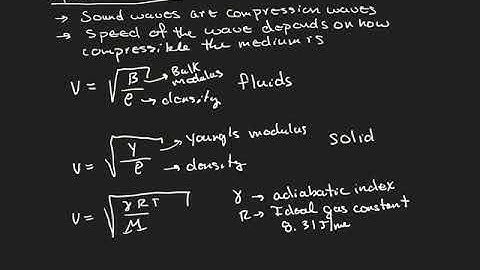 → Sound waves are compression waves
→ Speed of the wave depends on how
compressible the medium is
V = √(B/ρ) → Bulk modulus → density fluids
V = √(Y/ρ) → Young's modulus → density solid
V = √(γRT/M) γ → adiabatic index
R → Ideal gas constant
8.31 J/